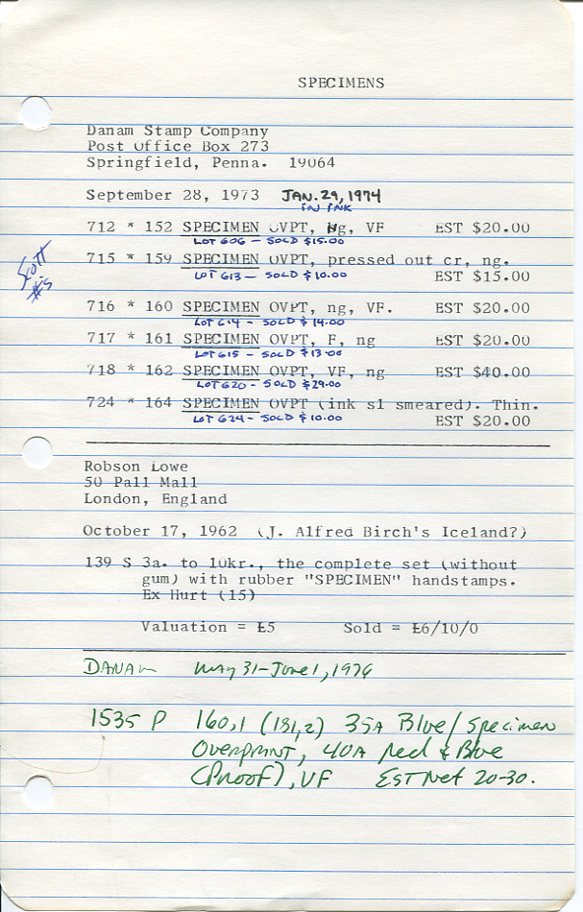 SPECIMENS
Danam Stamp Company
Post Office Box 273
Springfield, Penna. 19064
September 28, 1973 JAN. 29, 1974
IN INK
712 * 152 SPECIMEN OVPT, Ng, VF EST $20.00
LOT 606 - SOLD $15.00
715 * 159 SPECIMEN OVPT, pressed out cr, ng.
LOT 613 - SOLD $10.00 EST $15.00
Scott #s
716 * 160 SPECIMEN OVPT, ng, VF. EST $20.00
LOT 614 - SOLD $14.00
717 * 161 SPECIMEN OVPT, F, ng EST $20.00
LOT 615 - SOLD $13.00
718 * 162 SPECIMEN OVPT, VF, ng EST $40.00
LOT 620 - SOLD $29.00
724 * 164 SPECIMEN OVPT (ink sl smeared). Thin.
LOT 624 - SOLD $10.00 EST $20.00
Robson Lowe
50 Pall Mall
London, England
October 17, 1962 (J. Alfred Birch's Iceland?)
139 S 3a. to 10kr., the complete set (without
gum) with rubber "SPECIMEN" handstamps.
Ex Hurt (15)
Valuation = £5 Sold = £6/10/0
DANAM May 31-June 1, 1976
1535 P 160,1 (181,2) 35A Blue/Specimen
Overprint, 40A Red & Blue
(Proof), VF EST Net 20-30.